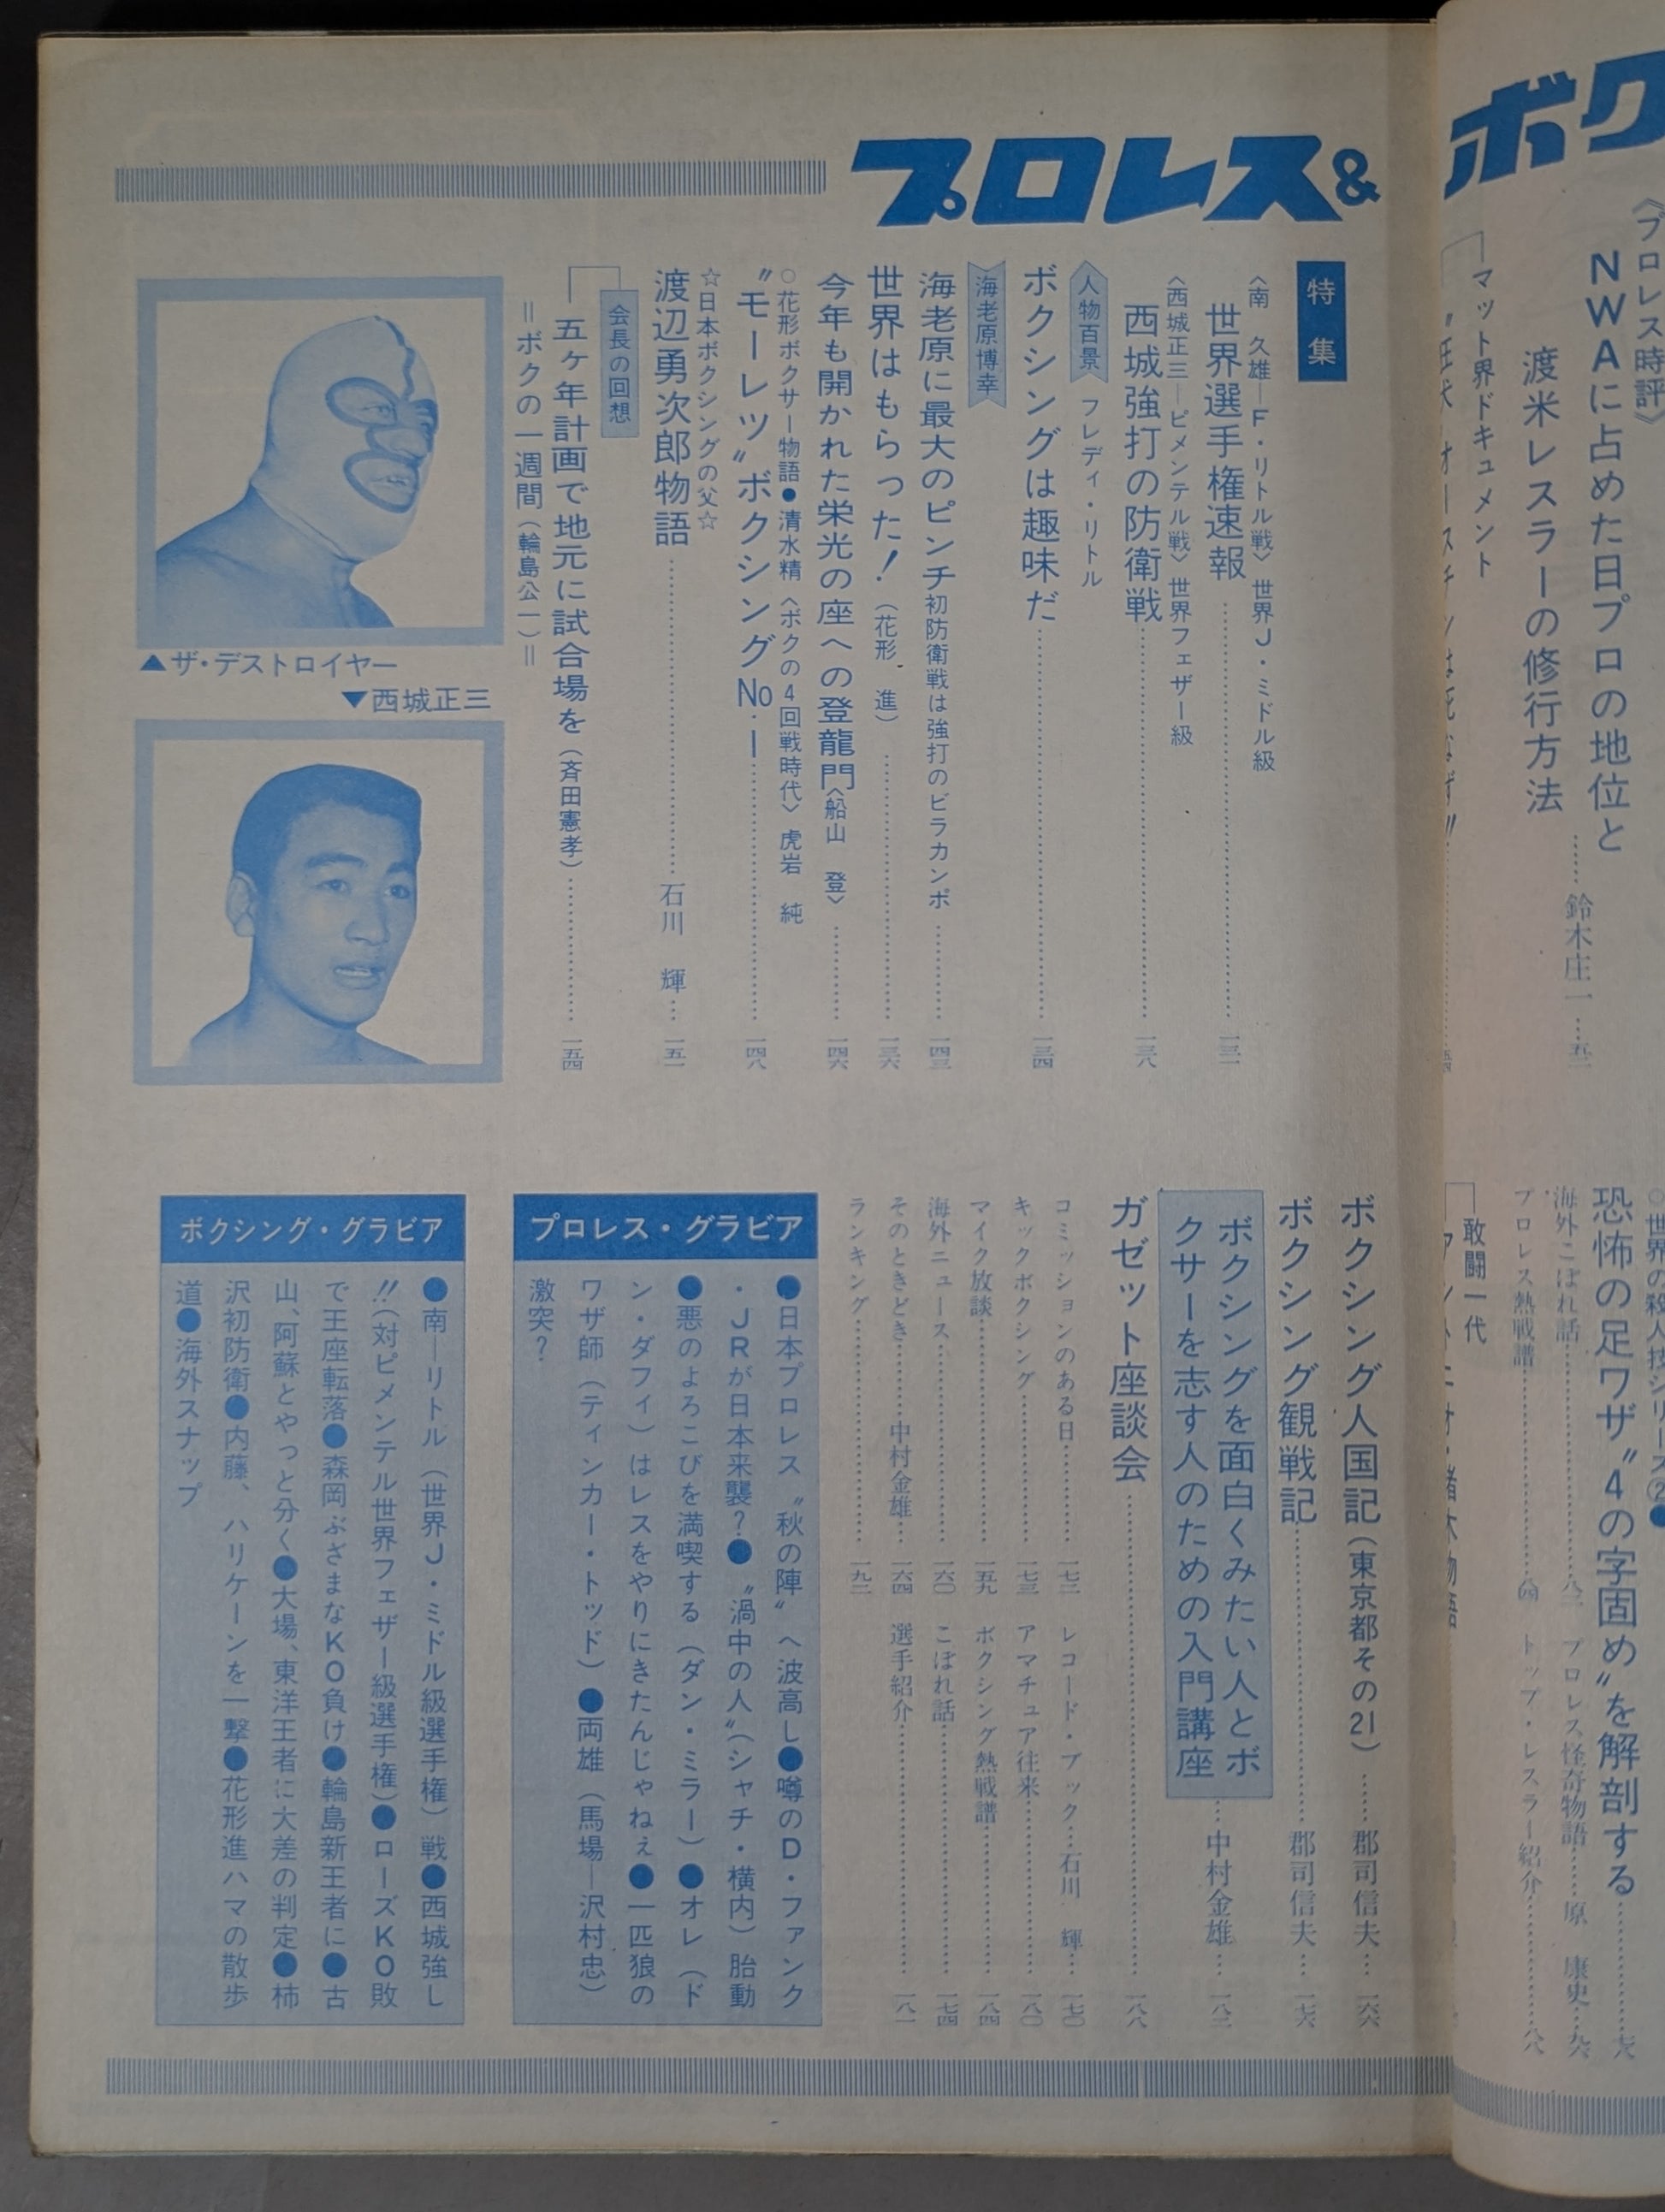 プロレス&
ボク
《プロレス時評》
NWAに占めた日プロの地位と
渡米レスラーの修行方法……鈴木庄一…
マット界ドキュメント
特集
〈南 久雄―F・リトル戦〉世界J・ミドル級
世界選手権速報……一三一
〈西城正三―ピメンテル戦〉世界フェザー級
西城強打の防衛戦……一三八
人物百景 フレディ・リトル
ボクシングは趣味だ……一三四
海老原博幸
海老原に最大のピンチ初防衛戦は強打のビラカンポ……一四三
世界はもらった!(花形 進)……一三六
今年も開かれた栄光の座への登龍門〈船山 登〉……一四六
○花形ボクサー物語●清水精〈ボクの4回戦時代〉虎岩 純
〝モーレツ〟ボクシングNo.1……一四八
☆日本ボクシングの父☆
渡辺勇次郎物語……石川 輝…一五一
会長の回想
五ヶ年計画で地元に試合場を(斉田憲孝)……一五四
=ボクの一週間(輪島公一)=
▲ザ・デストロイヤー
▼西城正三
○世界の殺人技シリーズ②●
恐怖の足ワザ〝4の字固め〟を解剖する
海外こぼれ話……
プロレス怪奇物語……原 康史…
プロレス熱戦譜……
トップ・レスラー紹介……八八
敢闘一代
ボクシング人国記(東京都その21)……郡司信夫…一六六
ボクシング観戦記……郡司信夫…一七六
ボクシングを面白くみたい人とボ
クサーを志す人のための入門講座…中村金雄…一八三
ガゼット座談会……一八八
コミッションのある日……一七二
レコード・ブック…石川 輝…一七〇
キックボクシング……一七三
アマチュア往来……一八〇
マイク放談……一五九
ボクシング熱戦譜……一八四
海外ニュース……一六〇
こぼれ話……一七四
そのときどき……中村金雄…一六四
選手紹介……一八一
ランキング……一九二
プロレス・グラビア
●日本プロレス〝秋の陣〟へ波高し●噂のD・ファンク
・JRが日本来襲?●〝渦中の人〟(シャチ・横内)胎動
●悪のよろこびを満喫する(ダン・ミラー)●オレ(ド
ン・ダフィ)はレスをやりにきたんじゃねぇ●一匹狼の
ワザ師(ティンカー・トッド)●両雄(馬場―沢村忠)
激突?
ボクシング・グラビア
●南―リトル(世界J・ミドル級選手権)戦●西城強し
!!(対ピメンテル世界フェザー級選手権)●ローズKO敗
で王座転落●森岡ぶざまなKO負け●輪島新王者に●古
山、阿蘇とやっと分く●大場、東洋王者に大差の判定●柿
沢初防衛●内藤、ハリケーンを一撃●花形進ハマの散歩
道●海外スナップ